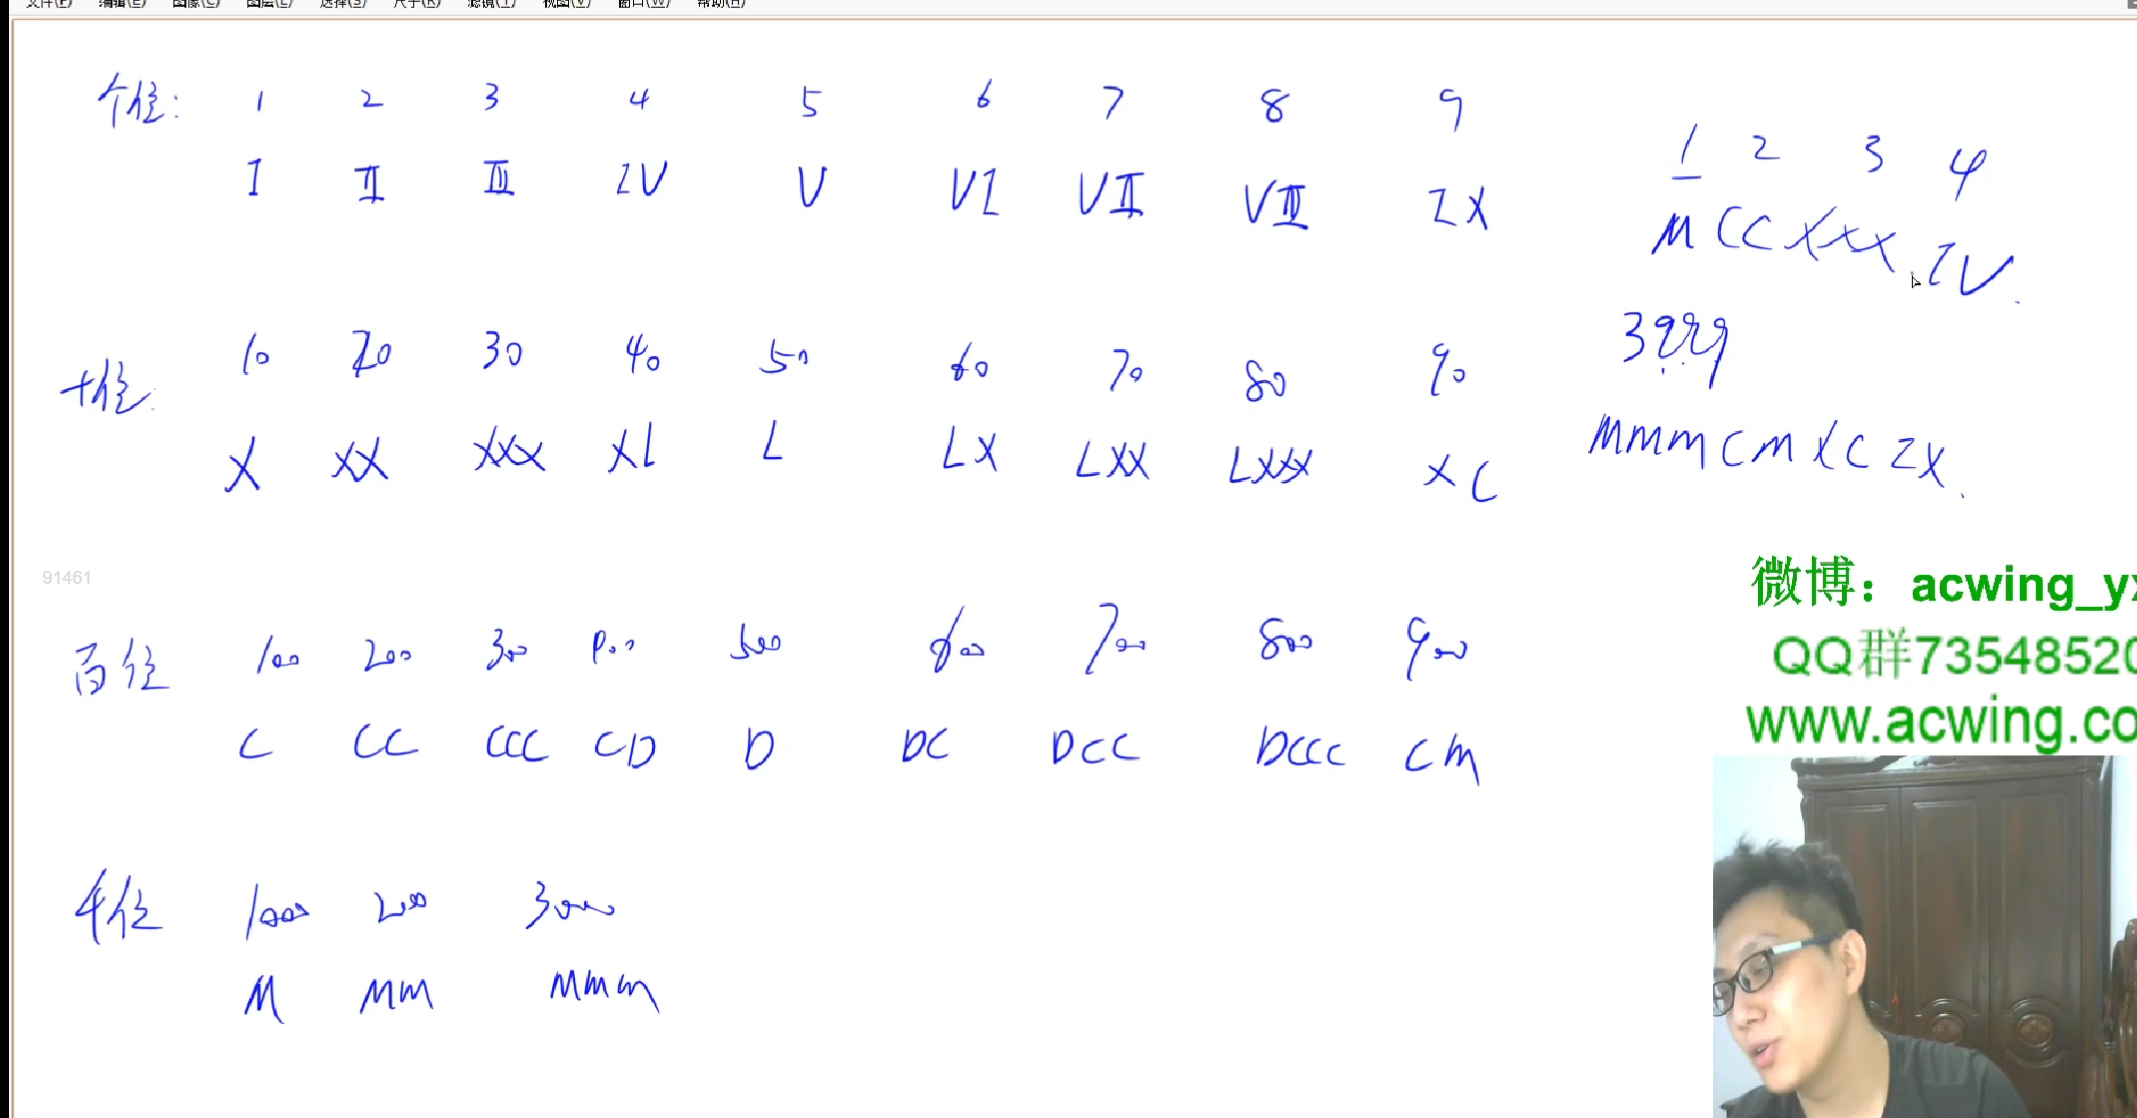 文件(F) 编辑(E) 图像(C) 图层(L) 选择(S) 尺寸(R) 滤镜(T) 视图(V) 窗口(W) 帮助(H)
个位: 1 2 3 4 5 6 7 8 9
I II III IV V VI VII VIII IX
十位: 10 20 30 40 50 60 70 80 90
X XX XXX XL L LX LXX LXXX XC
91461
百位 100 200 300 400 500 600 700 800 900
C CC CCC CD D DC DCC DCCC CM
千位 1000 200 3000
M MM MMM
1 2 3 4
M CC XXX IV
3999
MMM CM XC IX
微博：acwing_y
QQ群7354852
www.acwing.co